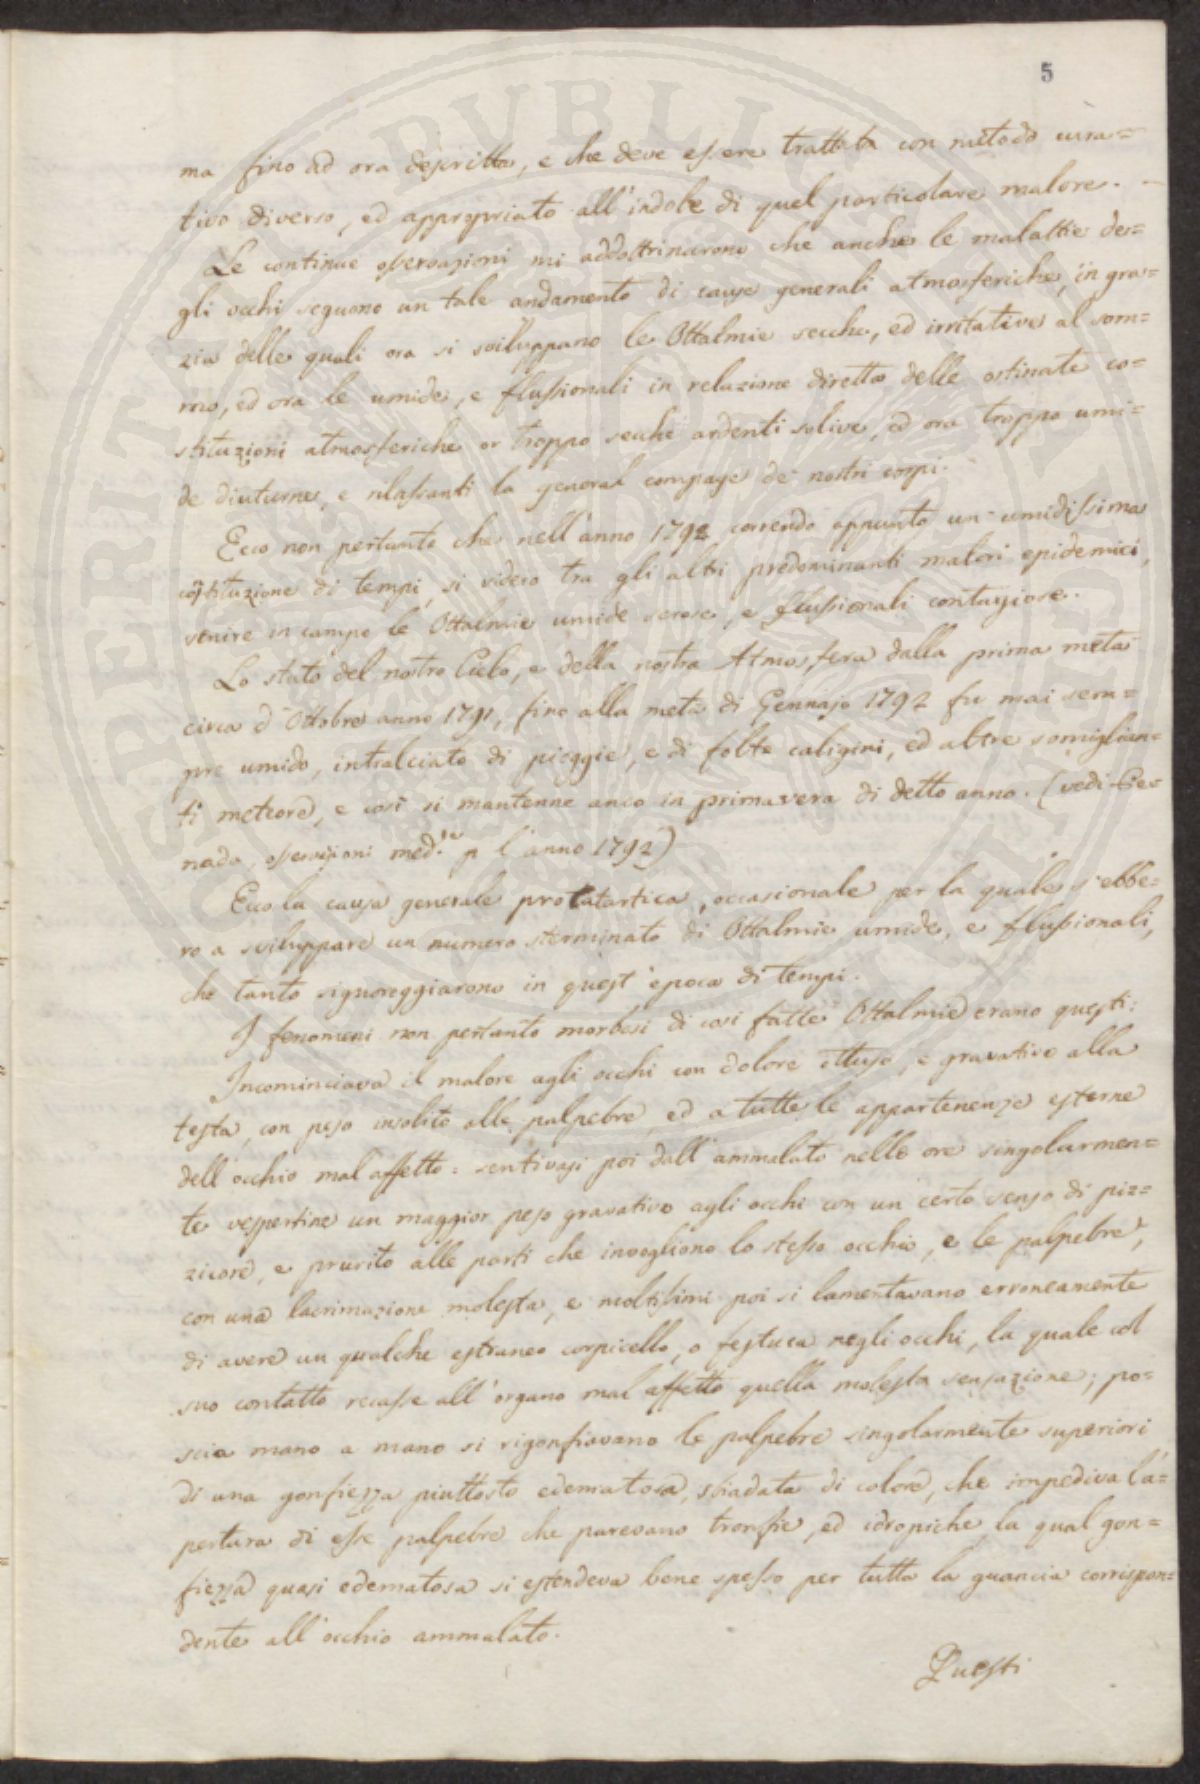 5
ma fino ad ora descritta, e che deve essere trattata con metodo cura=
tivo diverso, ed appropriato all'indole di quel particolare malore.
Le continue osservazioni mi addottrinarono che anche le malattie de=
gli occhi seguono un tale andamento di cause generali atmosferiche, in gra=
zia delle quali ora si sviluppano le Ottalmie secche, ed irritative al som=
mo, ed ora le umide, e flussionali in relazione diretta delle ostinate co=
stituzioni atmosferiche or troppo secche ardenti solive, ed ora troppo umi=
de diuturne, e rilassanti la general compage de' nostri corpi.
Ecco non pertanto che nell'anno 1792 correndo appunto un umidissima
costituzione di tempi, si videro tra gli altri predominanti malori epidemici,
venire in campo le Ottalmie umide serose, e flussionali contagiose.
Lo stato del nostro Cielo, e della nostra Atmosfera dalla prima metà
circa d'Ottobre anno 1791, fino alla metà di Gennajo 1792 fu mai sem=
pre umido, intralciato di pioggie, e di folte caligini, ed altre somiglian=
ti meteore, e così si mantenne anco in primavera di detto anno. (vedi
nado, osservazioni med.e p l'anno 1792)
Ecco la causa generale procatartica, occasionale per la quale s'ebbe=
ro a sviluppare un numero sterminato di Ottalmie umide, e flussionali,
che tanto signoreggiarono in quest'epoca di tempi.
I fenomeni non pertanto morbosi di così fatte Ottalmie erano questi:
Incominciava il malore agli occhi con dolore ottuso, e gravativo alla
testa, con peso insolito alle palpebre, ed a tutte le appartenenze esterne
dell'occhio mal affetto: sentivasi poi dall'ammalato nelle ore singolarmen=
te vespertine un maggior peso gravativo agli occhi con un certo senso di piz=
zicore, e prurito alle parti che invogliono lo stesso occhio, e le palpebre,
con una lacrimazione molesta, e moltissimi poi si lamentavano erroneamente
di avere un qualche estraneo corpicello, o festuca negli occhi, la quale col
suo contatto recasse all'organo mal affetto quella molesta sensazione; po=
scia mano a mano si rigonfiavano le palpebre singolarmente superiori
di una gonfiezza piuttosto edematosa, sbiadata di colore, che impediva l'a=
pertura di esse palpebre che parevano tronfie, ed idropiche, la qual gon=
fiezza quasi edematosa si estendeva bene spesso per tutta la guancia corrispon=
dente all'occhio ammalato.
Questi